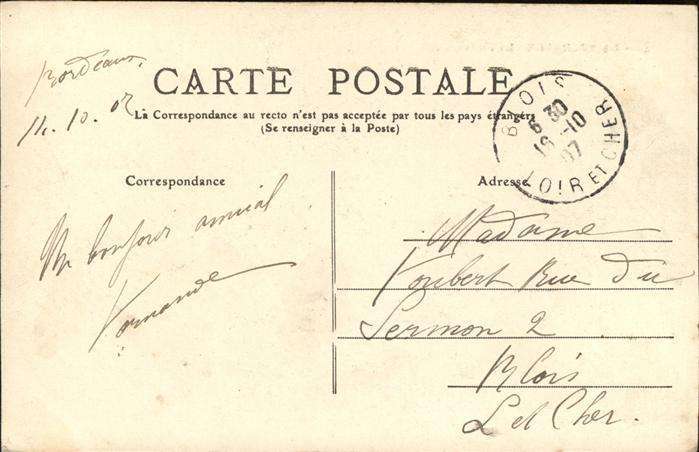 Bordeaux,
14. 10. 07
CARTE POSTALE
La Correspondance au recto n'est pas acceptée par tous les pays étrangers
(Se renseigner à la Poste)
BLOIS
6 30
18 -10
07
LOIR ET CHER
Correspondance
Adresse
Un bonjour amical
Madame
Rue Du
Sermon 2
Blois
L et Cher.